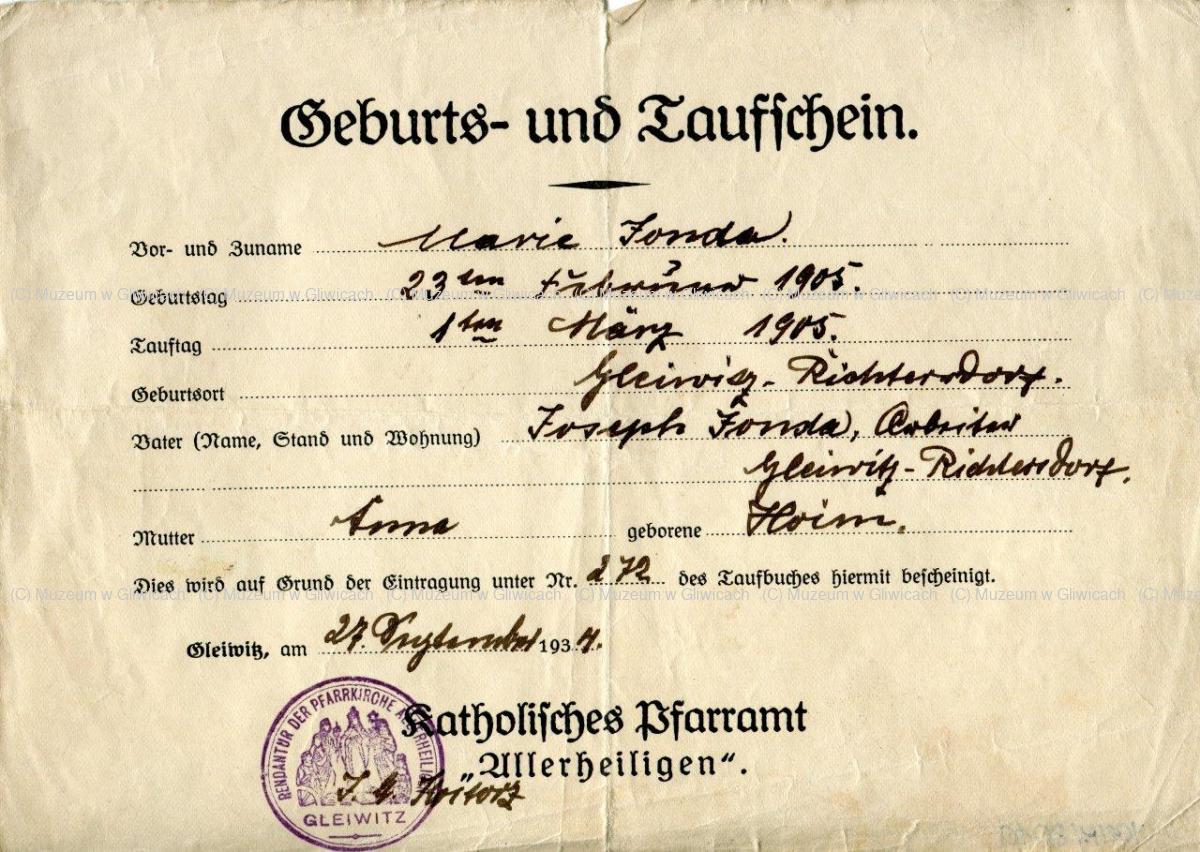 Geburts- und Taufschein.
Vor- und Zuname Marie Fonda.
Geburtstag 23ten Februar 1905.
(C) Muzeum w Gliwicach (C) Muzeum w Gliwicach (C) Muzeum w Gliwicach (C) Muzeum w Gliwicach (C) Muzeum w Gliwicach (C) Muzeum w Gliwicach (C) Mu
Tauftag 1ten März 1905.
Geburtsort Gleiwitz-Richtersdorf.
Vater (Name, Stand und Wohnung) Joseph Fonda, Arbeiter
Gleiwitz-Richtersdorf.
Mutter Anna geborene
Dies wird auf Grund der Eintragung unter Nr. 272 des Taufbuches hiermit bescheinigt.
(C) Muzeum w Gliwicach (C) Muzeum w Gliwicach (C) Muzeum w Gliwicach (C) Muzeum w Gliwicach (C) Muzeum w Gliwicach (C) Muzeum w Gliwicach (C) Mu
Gleiwitz, am 27. September 1934.
Katholisches Pfarramt
„Allerheiligen“.
RENDANTUR DER PFARRKIRCHE ALLERHEILIGEN
GLEIWITZ